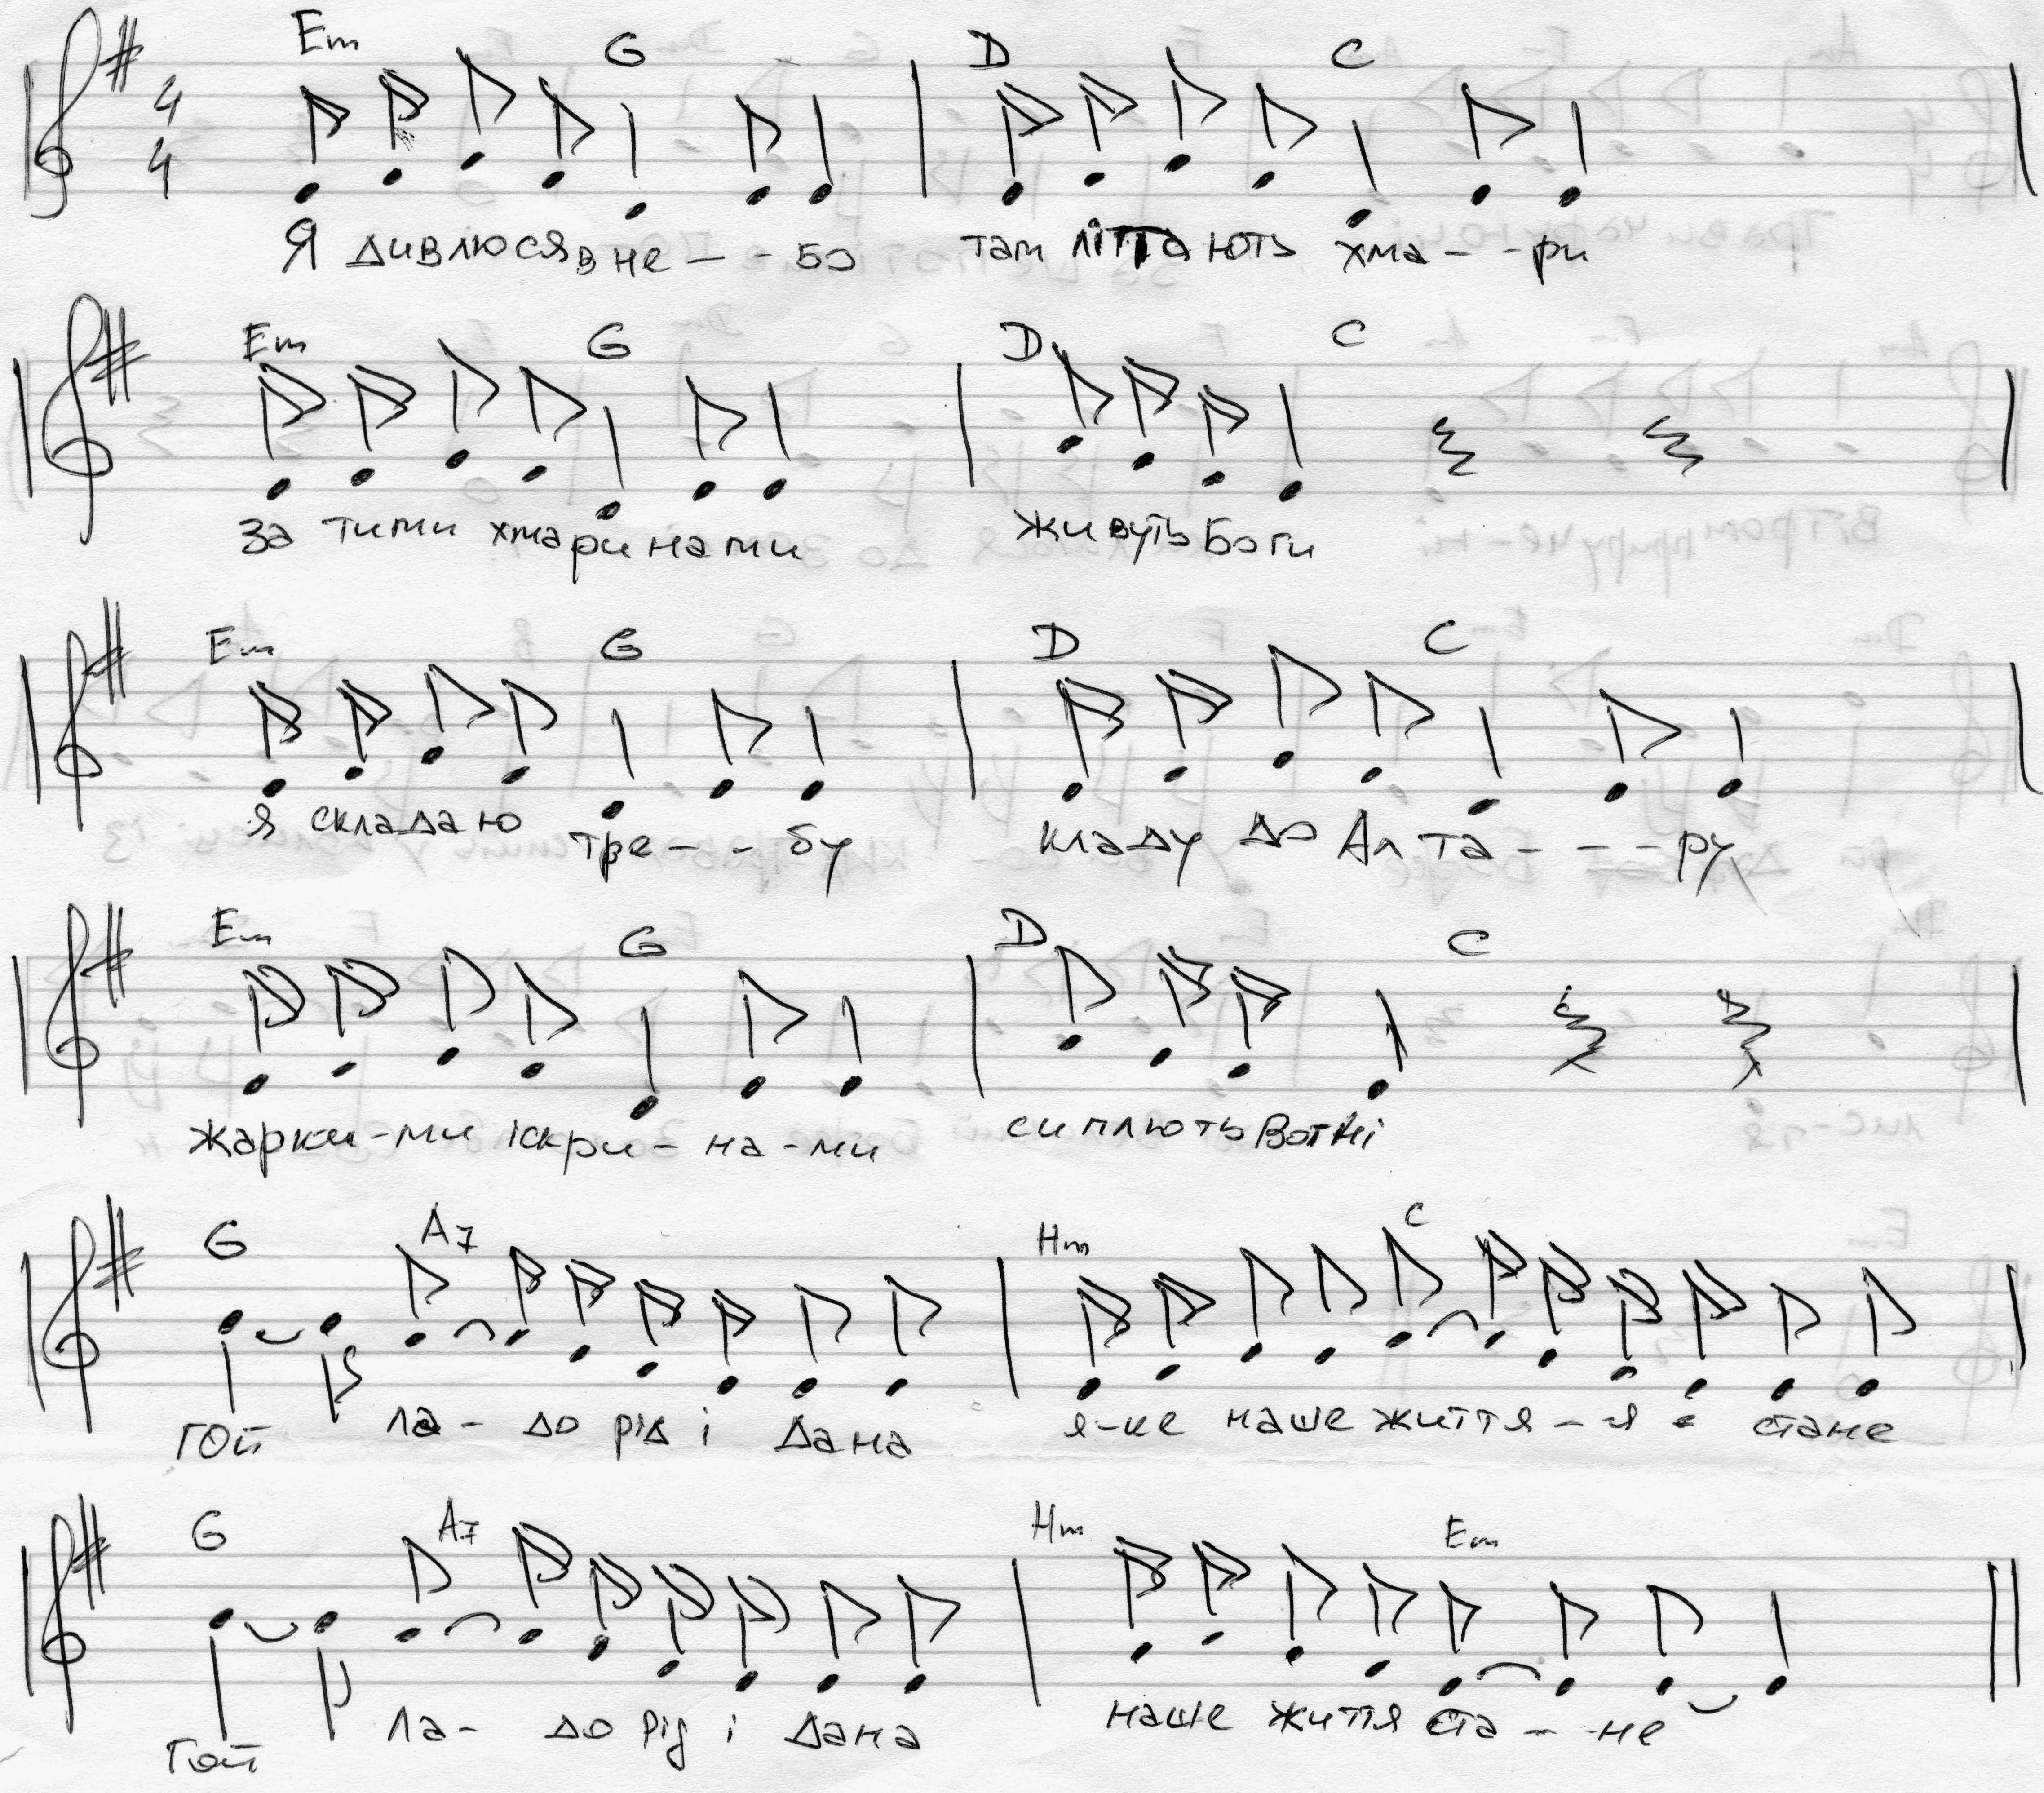 Em G D C
4
4
Я дивлюся в не - - бо там літають хма - - ри
Em G D C
за тими хмаринами живуть Боги
Em G D C
я складаю тре - - бу кладу до Алта - - - ру
Em G D C
жарки - ми іскри - на - ми сиплють Вогні
G A7 Hm C
гой ла - до рід і Дана я - ке наше життя - я є стане
G A7 Hm Em
Гой ла - до рід і Дана наше життя ста - - не